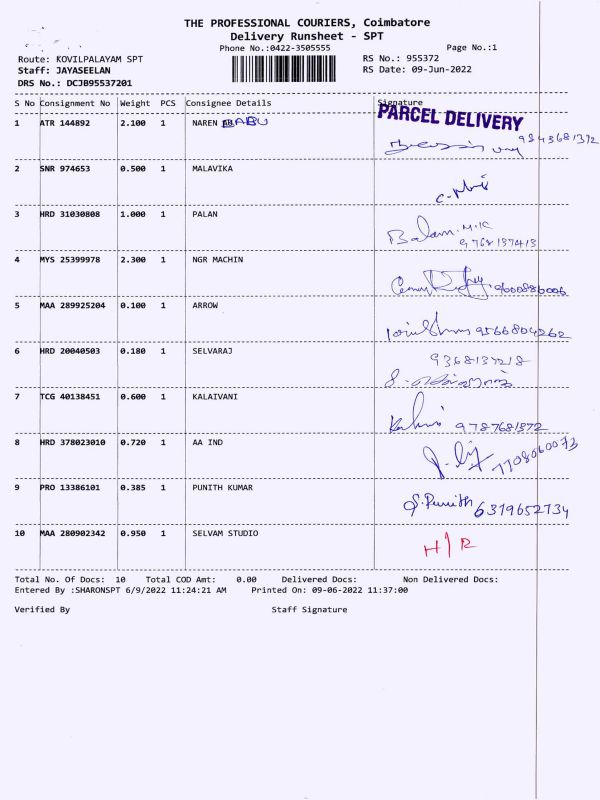 THE PROFESSIONAL COURIERS, Coimbatore
Delivery Runsheet - SPT
Phone No.:0422-3505555 Page No.:1
Route: KOVILPALAYAM SPT RS No.: 955372
Staff: JAYASEELAN RS Date: 09-Jun-2022
DRS No.: DCJB95537201
S No Consignment No Weight PCS Consignee Details Signature
PARCEL DELIVERY
1 ATR 144892 2.100 1 NAREN BABU 9843681372
2 SNR 974653 0.500 1 MALAVIKA
3 HRD 31030808 1.000 1 PALAN Balam.M.K
9768137413
4 MYS 25399978 2.300 1 NGR MACHIN 9600886006
5 MAA 289925204 0.100 1 ARROW 9566804262
6 HRD 20040503 0.180 1 SELVARAJ 9368137218
7 TCG 40138451 0.600 1 KALAIVANI 9787681372
8 HRD 378023010 0.720 1 AA IND 7708060073
9 PRO 13386101 0.385 1 PUNITH KUMAR S.Punith 6319652734
10 MAA 280902342 0.950 1 SELVAM STUDIO H/R
Total No. Of Docs: 10 Total COD Amt: 0.00 Delivered Docs: Non Delivered Docs:
Entered By :SHARONSPT 6/9/2022 11:24:21 AM Printed On: 09-06-2022 11:37:00
Verified By Staff Signature